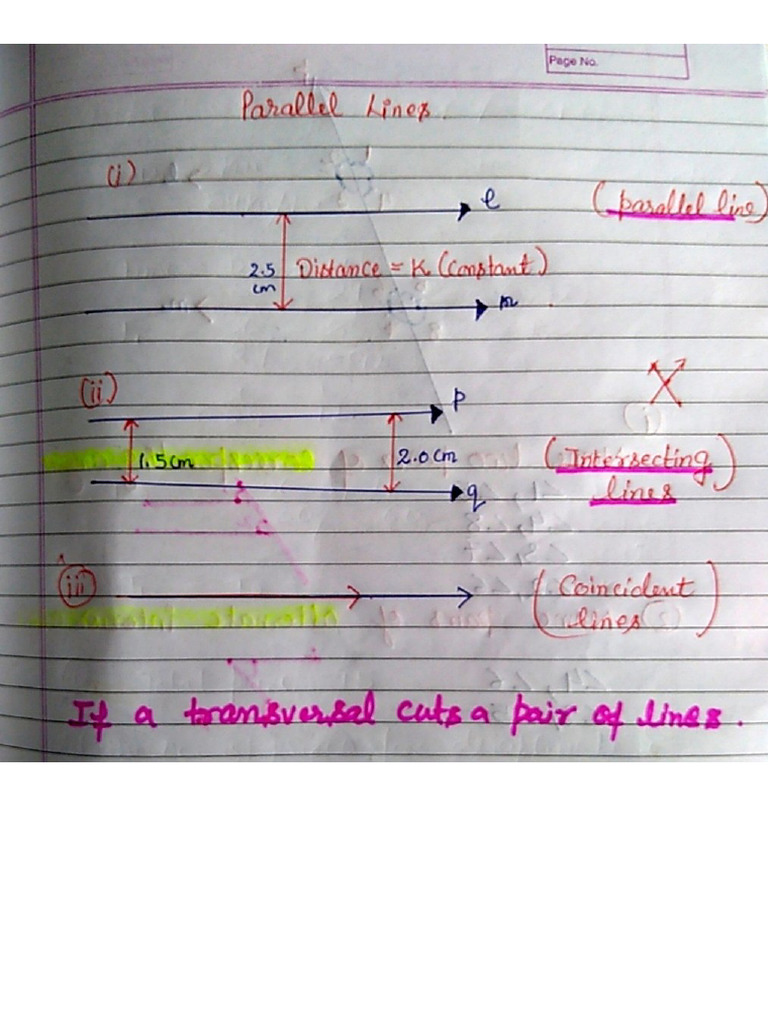 Page No.
Parallel Lines
(i)
l
(parallel line)
2.5 cm
Distance = K (constant)
m
(ii)
p
1.5cm
2.0cm
(Intersecting
lines)
q
(iii)
(Coincident
lines)
If a transversal cuts a pair of lines.